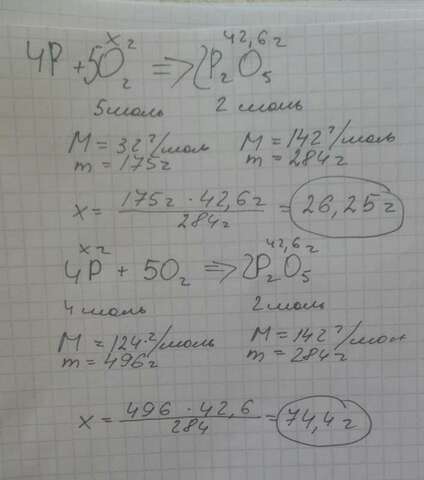 x г 42,6 г
4P + 5O₂ => 2P₂O₅
5 моль 2 моль
M = 32 г/моль M = 142 г/моль
m = 175 г m = 284 г
x = 175 г · 42,6 г / 284 г = 26,25 г
x г 42,6 г
4P + 5O₂ => 2P₂O₅
4 моль 2 моль
M = 124 г/моль M = 142 г/мол
m = 496 г m = 284 г
x = 496 · 42,6 / 284 = 74,4 г